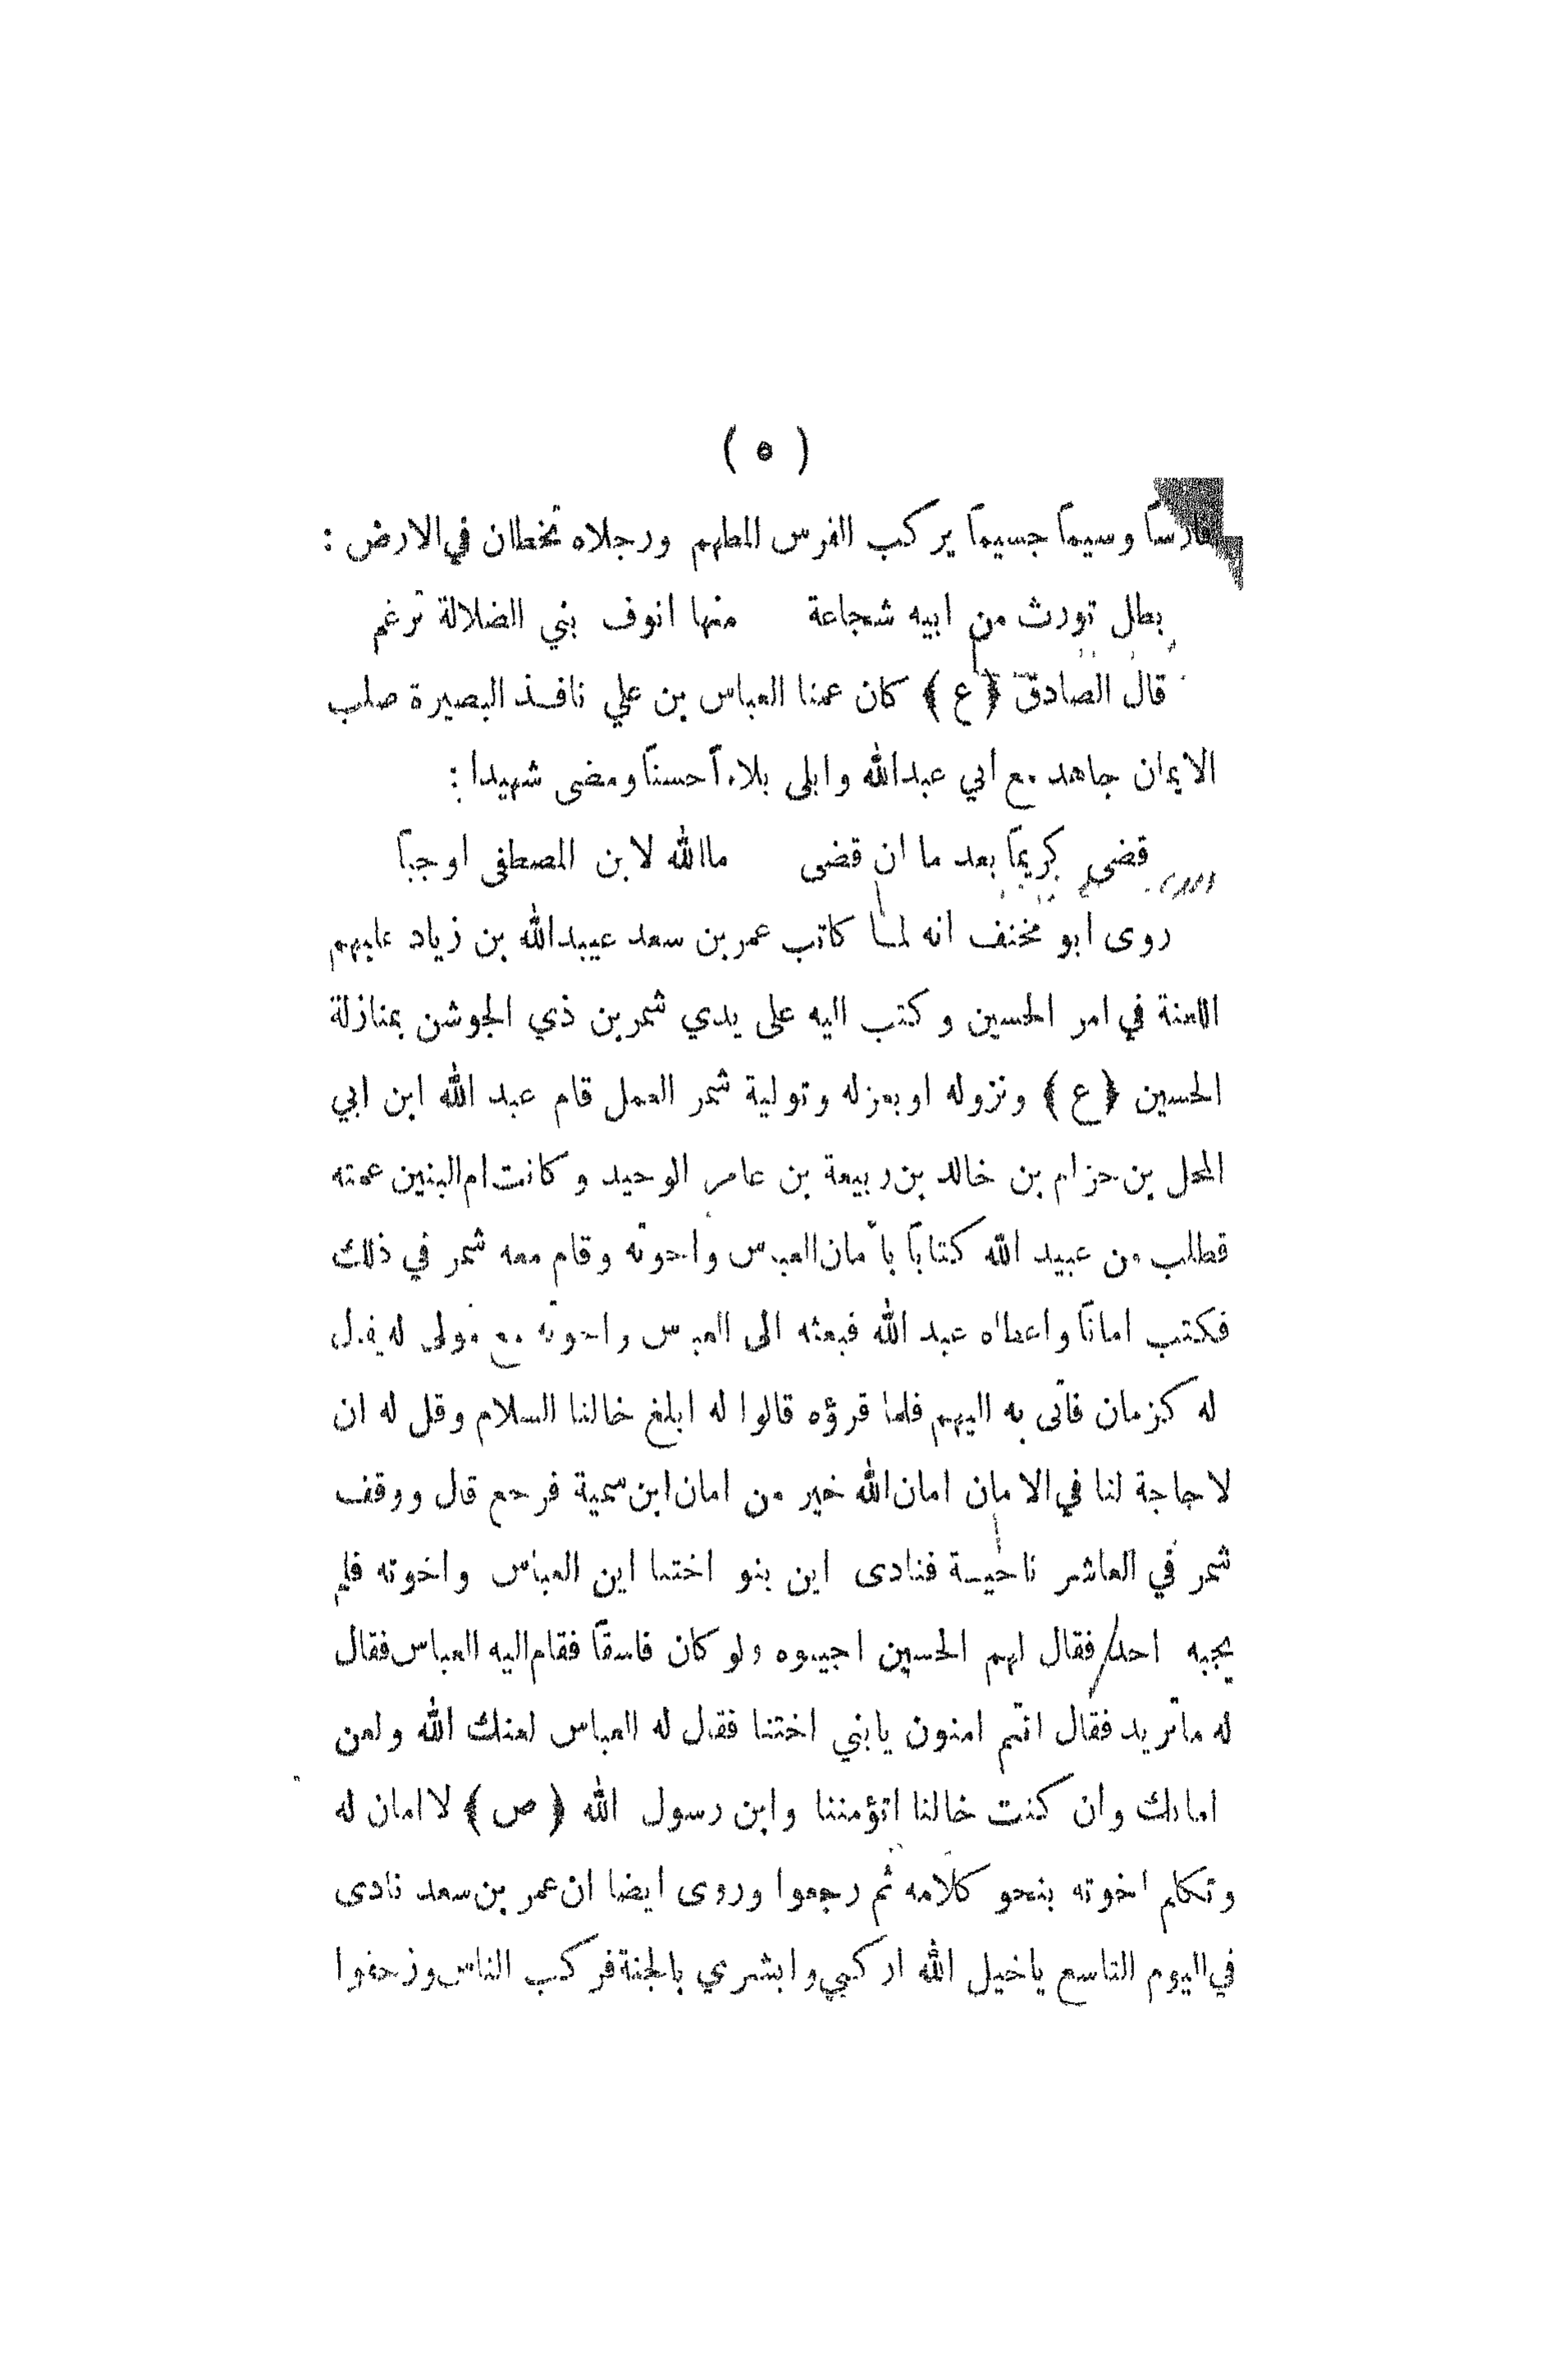 ( ٥ )
فارساً وسيماً جسيماً يركب الفرس المطهم ورجلاه تخطان في الارض :
بطل تورث من ابيه شجاعة منها انوف بني الضلالة ترغم
قال الصادق ﴿ ع ﴾ كان عمنا العباس بن علي نافذ البصيرة صلب
الايمان جاهد مع ابي عبدالله وابلى بلاءاً حسناً ومضى شهيدا :
قضى كريماً بعد ما ان قضى ماالله لابن المصطفى اوجباً
روى ابو مخنف انه لما كاتب عمر بن سعد عبيدالله بن زياد عليهم
اللعنة في امر الحسين وكتب اليه على يدي شمر بن ذي الجوشن بمنازلة
الحسين ﴿ ع ﴾ ونزوله او بعزله وتولية شمر العمل قام عبد الله ابن ابي
المحل بن حزام بن خالد بن ربيعة بن عامر الوحيد وكانت ام البنين عمته
فطلب من عبيد الله كتاباً بأمان العباس واخوته وقام معه شمر في ذلك
فكتب اماناً واعطاه عبد الله فبعثه الى العباس واخوته مع مولى له يقال
له كزمان فأتى به اليهم فلما قرؤه قالوا له ابلغ خالنا السلام وقل له ان
لا حاجة لنا في الامان امان الله خير من امان ابن سمية فرجع قال ووقف
شمر في العاشر ناحية فنادى اين بنو اختنا اين العباس واخوته فلم
يجبه احد فقال لهم الحسين اجيبوه ولو كان فاسقاً فقام اليه العباس فقال
له ماتريد فقال انتم امنون يابني اختنا فقال له العباس لعنك الله ولعن
امانك وان كنت خالنا اتؤمننا وابن رسول الله ﴿ ص ﴾ لا امان له
وتكلم اخوته بنحو كلامه ثم رجعوا وروى ايضا ان عمر بن سعد نادى
في اليوم التاسع ياخيل الله اركبي وابشري بالجنة فركب الناس وزحفوا